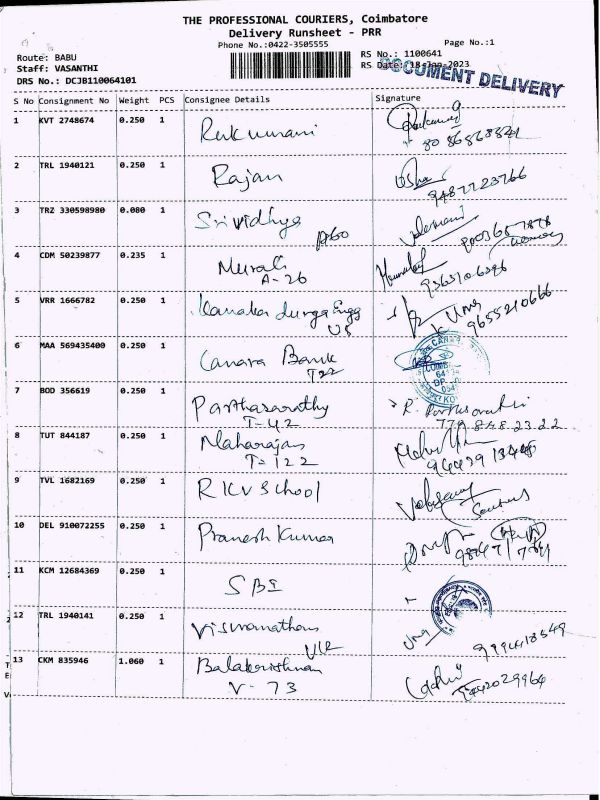 THE PROFESSIONAL COURIERS, Coimbatore
Delivery Runsheet - PRR
Phone No.:0422-3505555
Page No.:1
Route: BABU
RS No.: 1100641
Staff: VASANTHI
RS Date: 18-Jan-2023
DOCUMENT DELIVERY
DRS No.: DCJB110064101
S No Consignment No Weight PCS Consignee Details Signature
1 KVT 2748674 0.250 1 Rukumani
2 TRL 1940121 0.250 1 Rajan Usha
9487723766
3 TRZ 330598980 0.080 1 Srividhya
A60
4 CDM 50239877 0.235 1 Murali
A-26
5 VRR 1666782 0.250 1 Kanaka durga Engg
K Uma
9655210666
6 MAA 569435400 0.250 1 Canara Bank
T22
7 BOD 356619 0.250 1 Parthasarathy R. Parthasarathi
T-42 779 848 23 22
8 TUT 844187 0.250 1 Maharajan
T-122
9 TVL 1682169 0.250 1 RKV School
10 DEL 910072255 0.250 1 Pranesh Kumar
11 KCM 12684369 0.250 1 SBI
12 TRL 1940141 0.250 1 Viswanathan Uma
13 CKM 835946 1.060 1 Balakrishnan
V-73